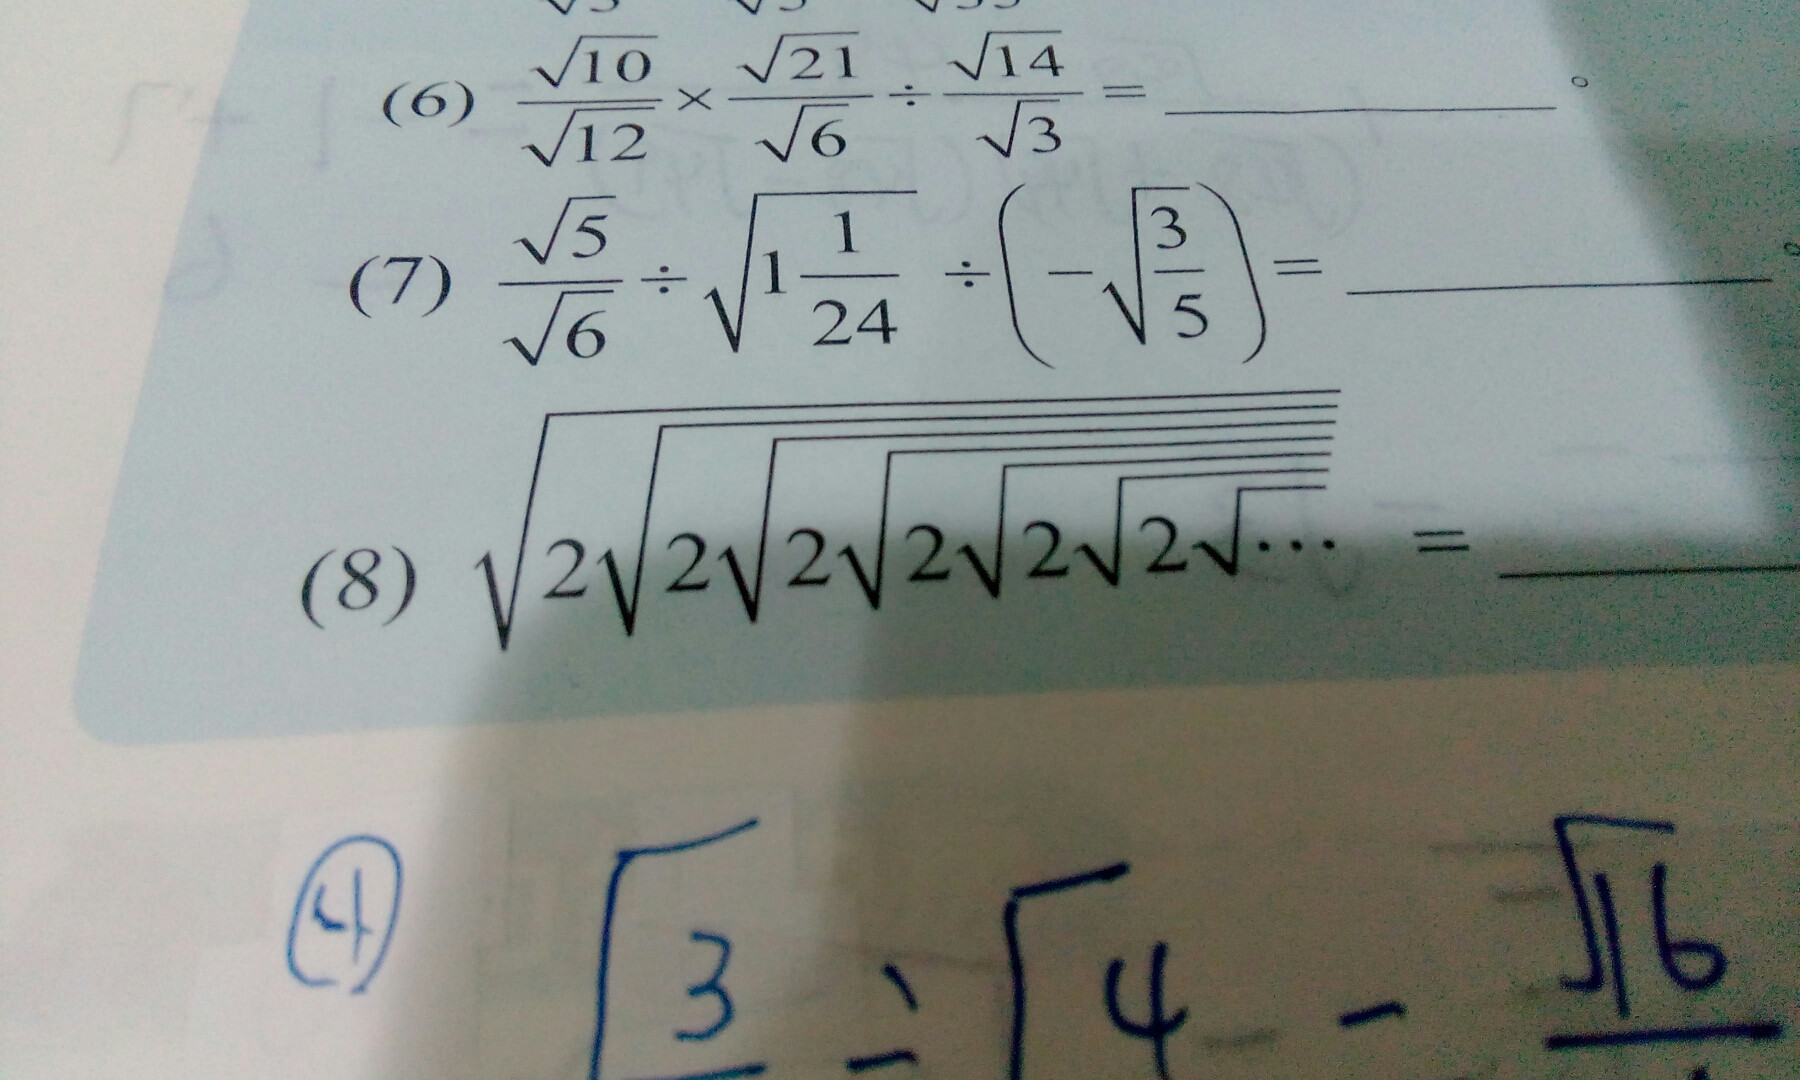 (6) √10/√12 × √21/√6 ÷ √14/√3 = ______。
(7) √5/√6 ÷ √(1 1/24) ÷ (−√(3/5)) = ______。
(8) √(2√(2√(2√(2√(2√(2√⋯)))))) = ______
④ √3 ÷ √4 - √16